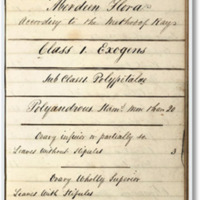 Aberdeen Flora
According to the Method of Hays
Class 1. Exogens
Sub Class. Polypitalos
Polyandrous Stamns. more than 20
Ovary inferior or partially so.
Leaves Without Stipules 3
Ovary Wholly Superior
Leaves With Stipules